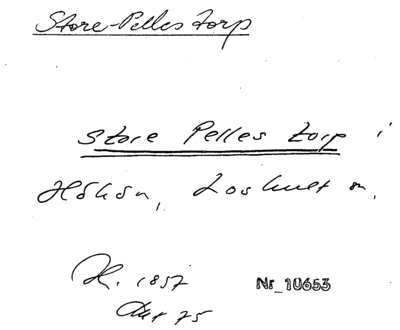 Store-Pelles torp
Store Pelles torp i
Hökön, Loshult sn.
H. 1857
75
Nr 10653